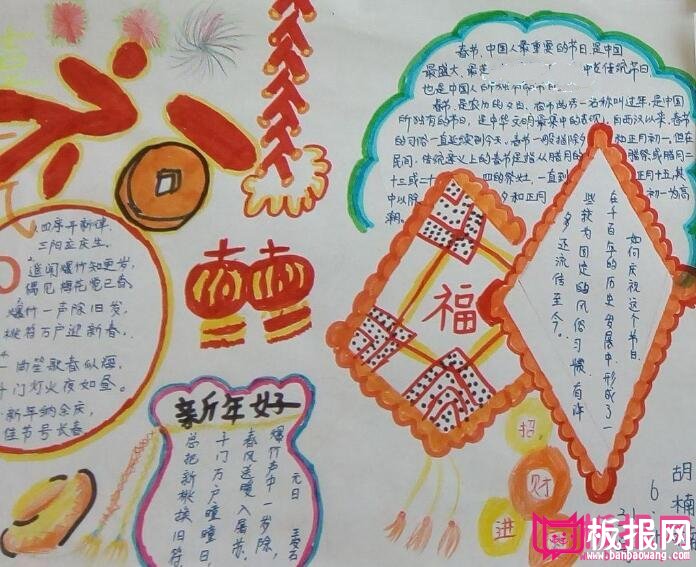 春节，中国人最重要的节日，是中国
最盛大、最
传统节日
也是中国人所独有的节日。
春节，是农历的岁首，春节的另一名称叫过年，是中国
所独有的节日，是中华文明最集中的表现，自西汉以来，春节
的习俗一直延续到今天。春节一般指除夕和正月初一。但在
民间，传统意义上的春节是指从腊月的
腊祭或腊月二
十三或二十四的祭灶，一直到
正月十五，其
中以除夕和正月
初一为高
潮。
如何庆祝这个节日，
在千百年的历史发展中，形成了一
些较为固定的风俗习惯，有许
多还流传至今。
福
招
财
进
四序平新律，
三阳应庆生。
遥闻爆竹知更岁，
偶见梅花觉已春
爆竹一声除旧岁，
桃符万户迎新春。
一曲笙歌春似海，
千门灯火夜如昼。
新年纳余庆，
佳节号长春
新年好
元日
爆竹声中一岁除，
春风送暖入屠苏。
千门万户曈曈日，
总把新桃换旧符
胡楠
6
板报网
www.banbaowang.com